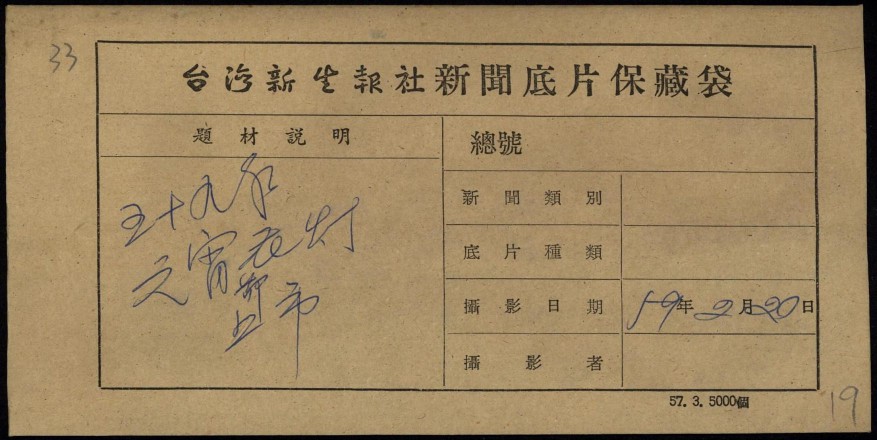 33
台灣新生報社新聞底片保藏袋
題材説明
五十九年
元宵花灯
上市
總號
新聞類別
底片種類
攝影日期 59年2月20日
攝影者
57. 3. 5000個
19